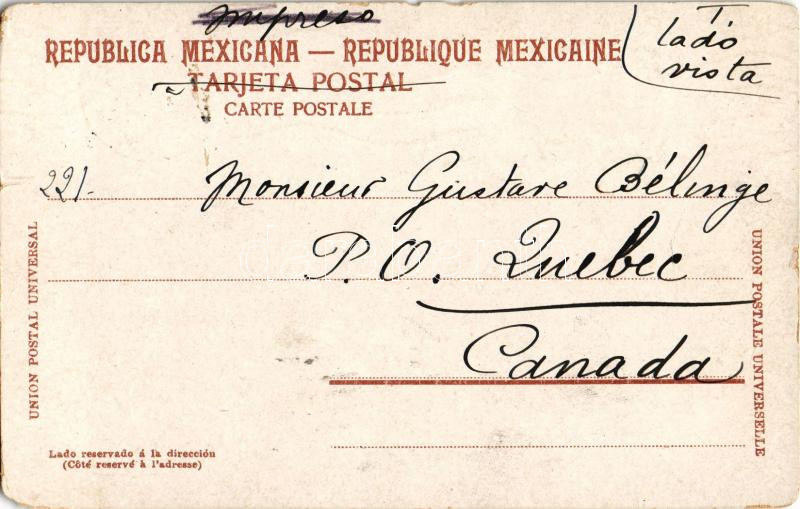 Impreso
T
lado
vista
REPUBLICA MEXICANA — REPUBLIQUE MEXICAINE
TARJETA POSTAL
CARTE POSTALE
221-
Monsieur Gustave Bélinge
P.O. Quebec
Canada
UNION POSTAL UNIVERSAL
UNION POSTALE UNIVERSELLE
Lado reservado á la dirección
(Côté reservé à l'adresse)